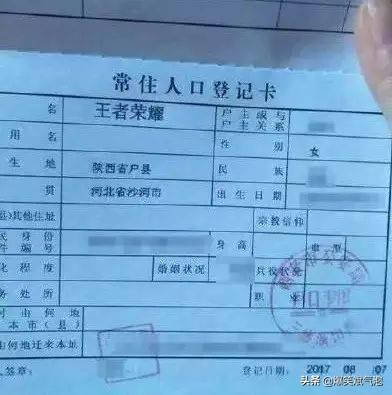 常住人口登记卡
名 王者荣耀 户主或与户主关系
用名 性别 女
生地 陕西省户县 民族
贯 河北省沙河市 出生日期
县)其他住址 宗教信仰
民身份件编号 身高 血型
化程度 婚姻状况 兵役状况
务处所 职业
何时由何地
本市(县)
由何地迁来本址
人签章: 登记日期: 2017 08 07
头条 @爆笑斌气抱